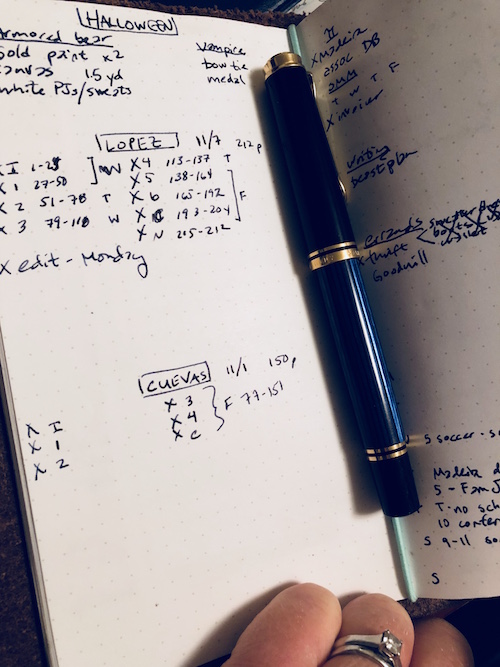 HALLOWEEN
Armored bear
Gold paint x2
Canvas 1.5 yd
White PJs/sweats
Vampire
bow tie
medal
LOPEZ 11/7 212 p
X I 1-25
X 1 27-50
X 2 51-78 T
X 3 79-110 W
X 4 113-137 T
X 5 138-164
X 6 165-192
X C 193-204
X N 205-212
F
X edit - Monday
CUEVAS 11/1 150p
X I
X 1
X 2
X 3
X 4
X C
F 77-151
II
X Madeira
2550L DB
2MM
T W T F
X invoice
writing
beast plan
errands
thrift
Goodwill
sweater
boots
S soccer
Madeira
T - no sch
10
S 9-11
S